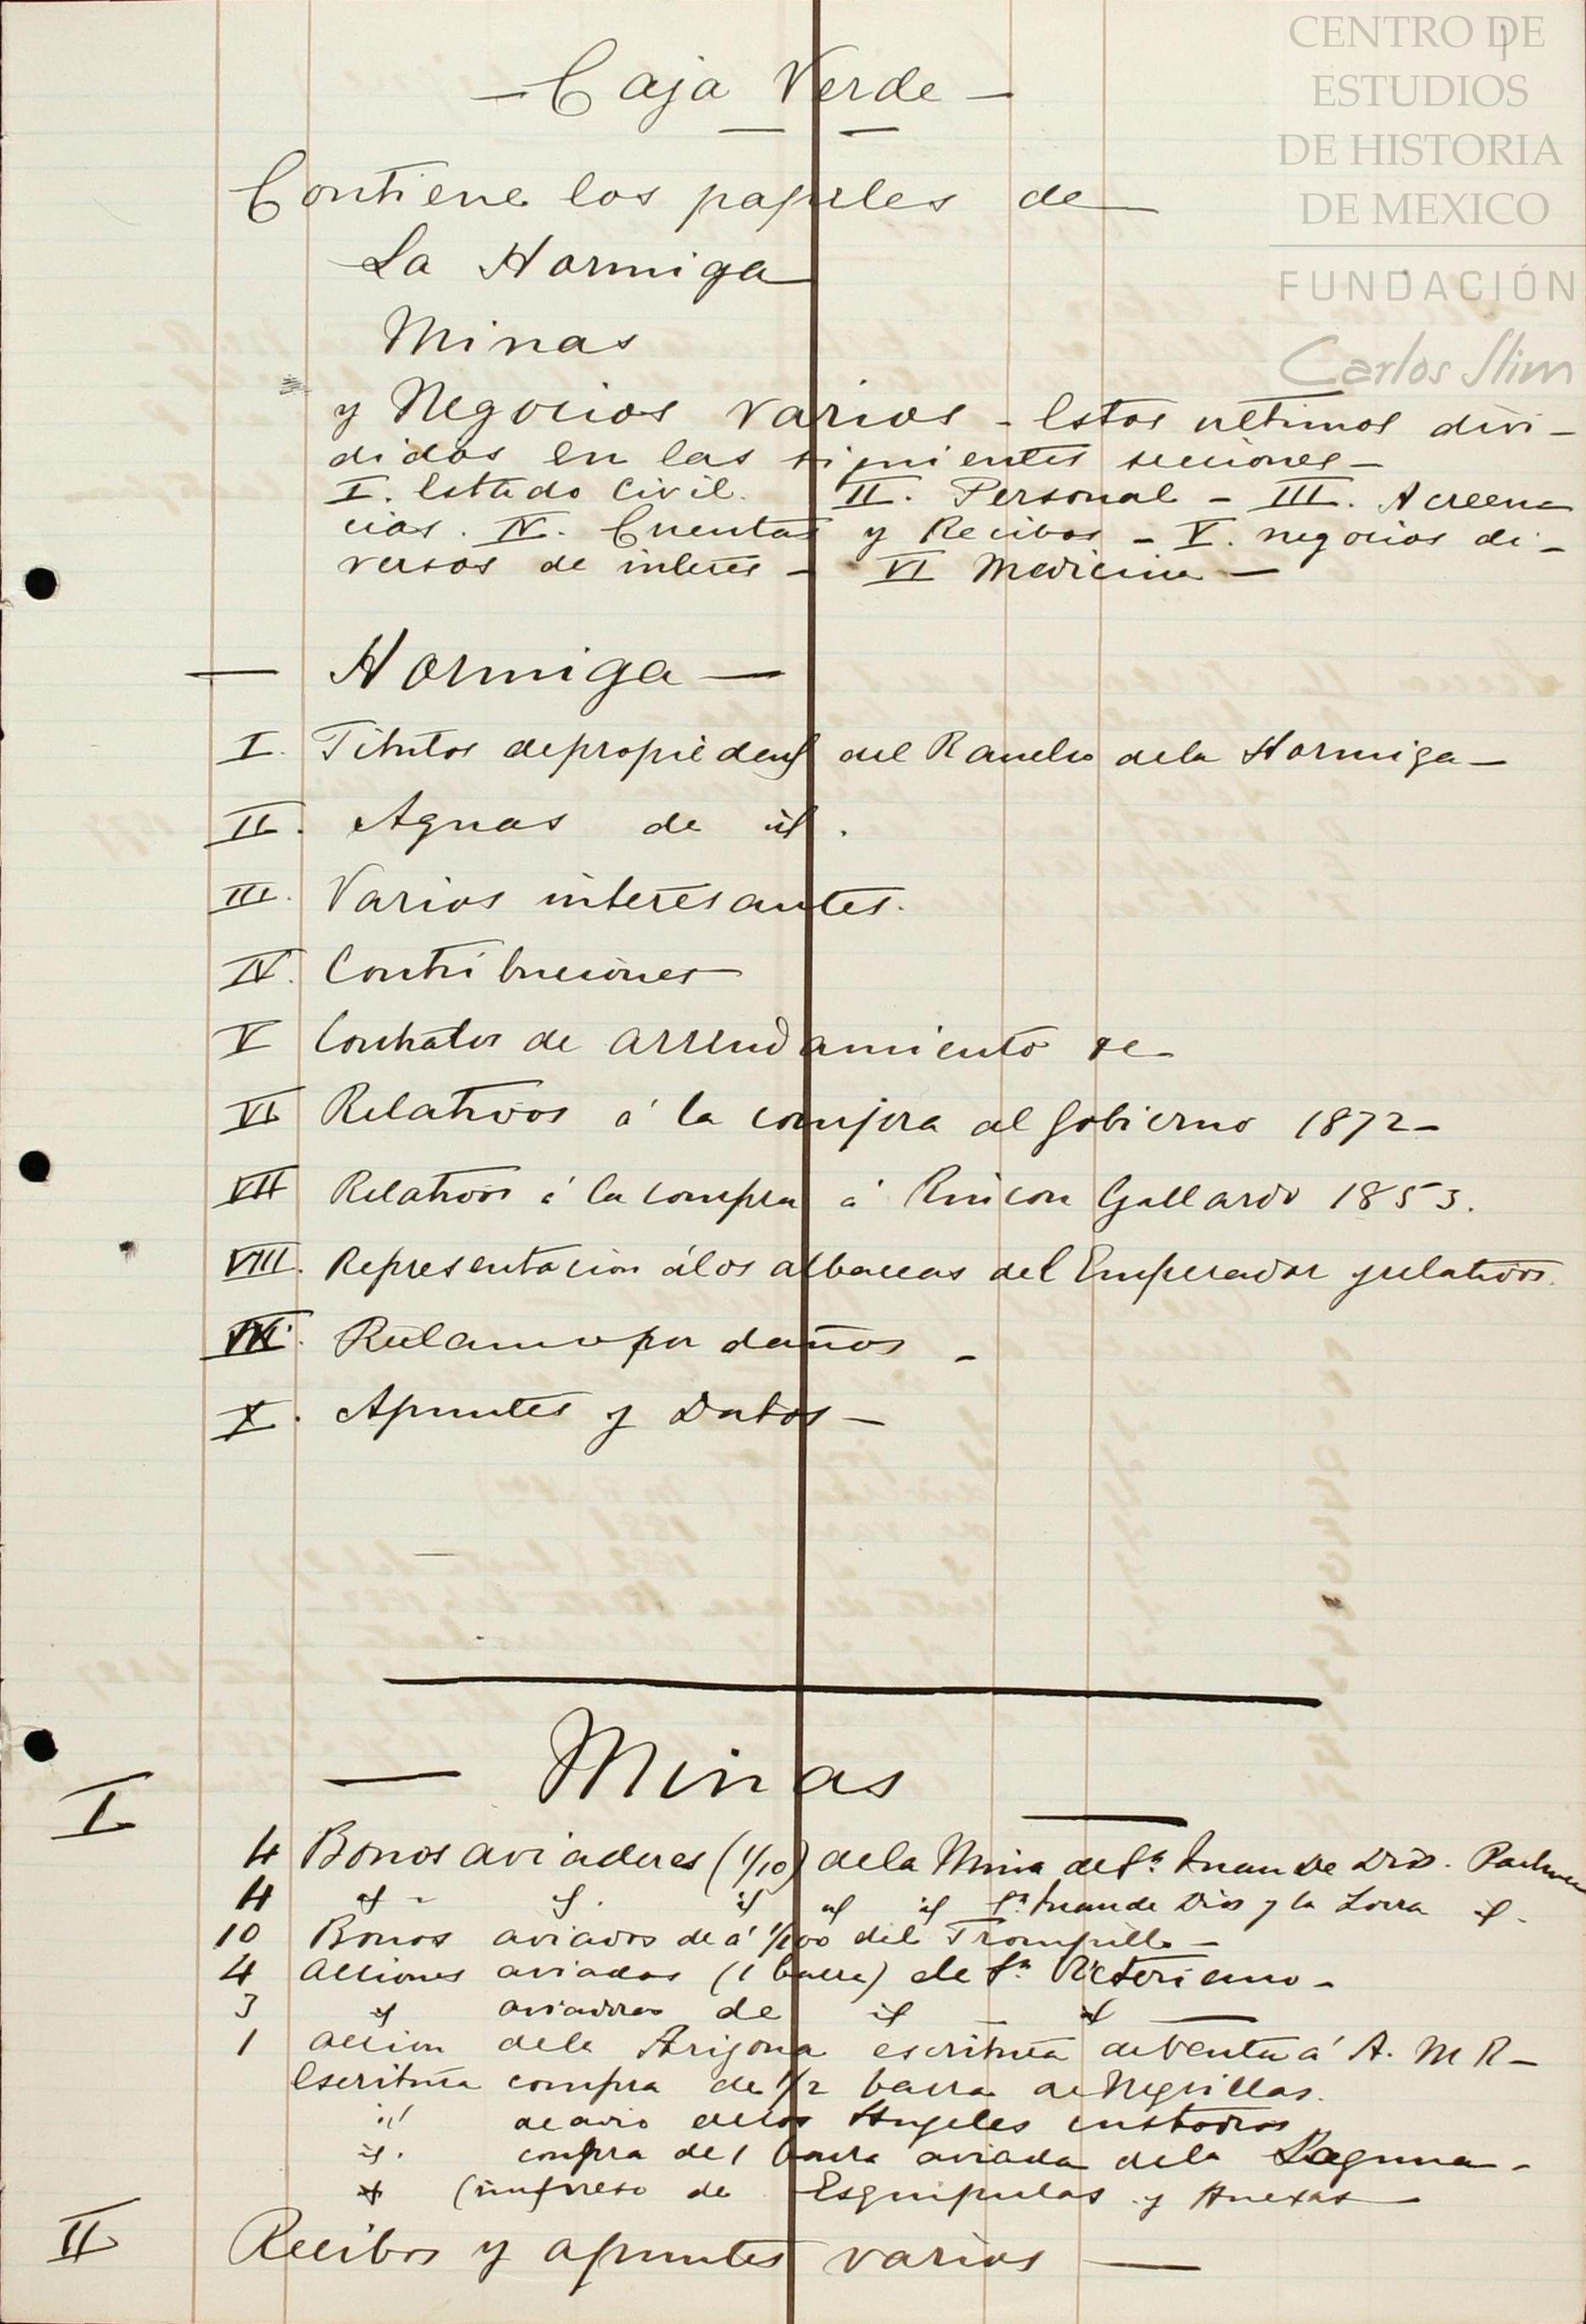 CENTRO DE
ESTUDIOS
DE HISTORIA
DE MEXICO
FUNDACIÓN
Carlos Slim
1
— Caja Verde —
Contiene los papeles de
La Hormiga
Minas
y Negocios varios - Estos ultimos divi-
didos en las siguientes secciones -
I. Estado Civil. II. Personal - III. Acreen
cias. IV. Cuentas y Recibos - V. negocios di-
versos de interes - VI Medicina -
— Hormiga —
I. Titulos de propiedad del Rancho de la Hormiga -
II. Aguas de id.
III. Varios interesantes.
IV. Contribuciones
V Contratos de arrendamiento &c
VI Relativos á la compra al Gobierno 1872 -
VII Relativos á la compra á Rincon Gallardo 1853.
VIII. Representacion á los albaceas del Emperador y relativos.
IX. Reclamo por daños -
X. Apuntes y Datos -
I — Minas
4 Bonos aviadores (1/10) de la Mina de Sn. Juan de Dios. Pachuca
4 id - id. id id id Sn. Juan de Dios y la Zorra id.
10 Bonos aviados de á 1/100 del Trompillo -
4 acciones aviadas (1 barra) de Sn. Victoriano -
3 id aviadoras de id id
1 accion de la Arizona escritura de venta á A. M R -
Escritura compra de 1/2 barra de Negrillas.
id de avio de los Angeles custodios
id. compra de 1 barra aviada de la Laguna -
id (impreso de Esquipulas y Anexas
II Recibos y apuntes varios —